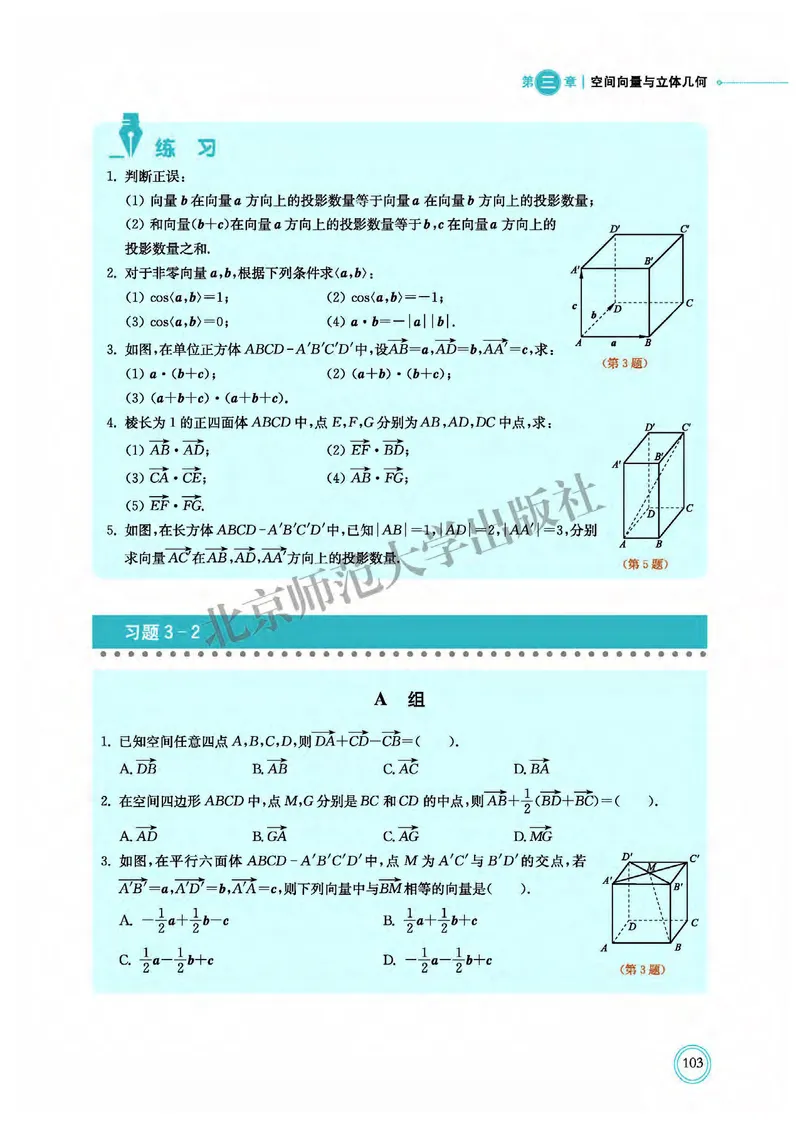 第三章 | 空间向量与立体几何
练 习
1. 判断正误:
(1) 向量 b 在向量 a 方向上的投影数量等于向量 a 在向量 b 方向上的投影数量;
(2) 和向量(b+c)在向量 a 方向上的投影数量等于 b,c 在向量 a 方向上的
投影数量之和.
2. 对于非零向量 a,b,根据下列条件求⟨a,b⟩:
(1) cos⟨a,b⟩=1; (2) cos⟨a,b⟩=-1;
(3) cos⟨a,b⟩=0; (4) a·b=-|a||b|.
3. 如图,在单位正方体 ABCD-A'B'C'D'中,设AB=a,AD=b,AA'=c,求:
(1) a·(b+c); (2) (a+b)·(b+c);
(3) (a+b+c)·(a+b+c).
D' C' A' B' c b D C A a B
(第 3 题)
4. 棱长为 1 的正四面体 ABCD 中,点 E,F,G 分别为 AB,AD,DC 中点,求:
(1) AB·AD; (2) EF·BD;
(3) CA·CE; (4) AB·FG;
(5) EF·FG.
5. 如图,在长方体 ABCD-A'B'C'D'中,已知|AB|=1,|AD|=2,|AA'|=3,分别
求向量AC'在AB,AD,AA'方向上的投影数量.
D' C' A' B' D C A B
(第 5 题)
北京师范大学出版社
习题 3-2
A 组
1. 已知空间任意四点 A,B,C,D,则DA+CD-CB=( ).
A. DB B. AB C. AC D. BA
2. 在空间四边形 ABCD 中,点 M,G 分别是 BC 和 CD 的中点,则AB+1/2(BD+BC)=( ).
A. AD B. GA C. AG D. MG
3. 如图,在平行六面体 ABCD-A'B'C'D'中,点 M 为 A'C'与 B'D'的交点,若
A'B'=a,A'D'=b,A'A=c,则下列向量中与BM相等的向量是( ).
A. -1/2a+1/2b-c B. 1/2a+1/2b+c
C. 1/2a-1/2b+c D. -1/2a-1/2b+c
D' C' M A' B' D C A B
(第 3 题)
103